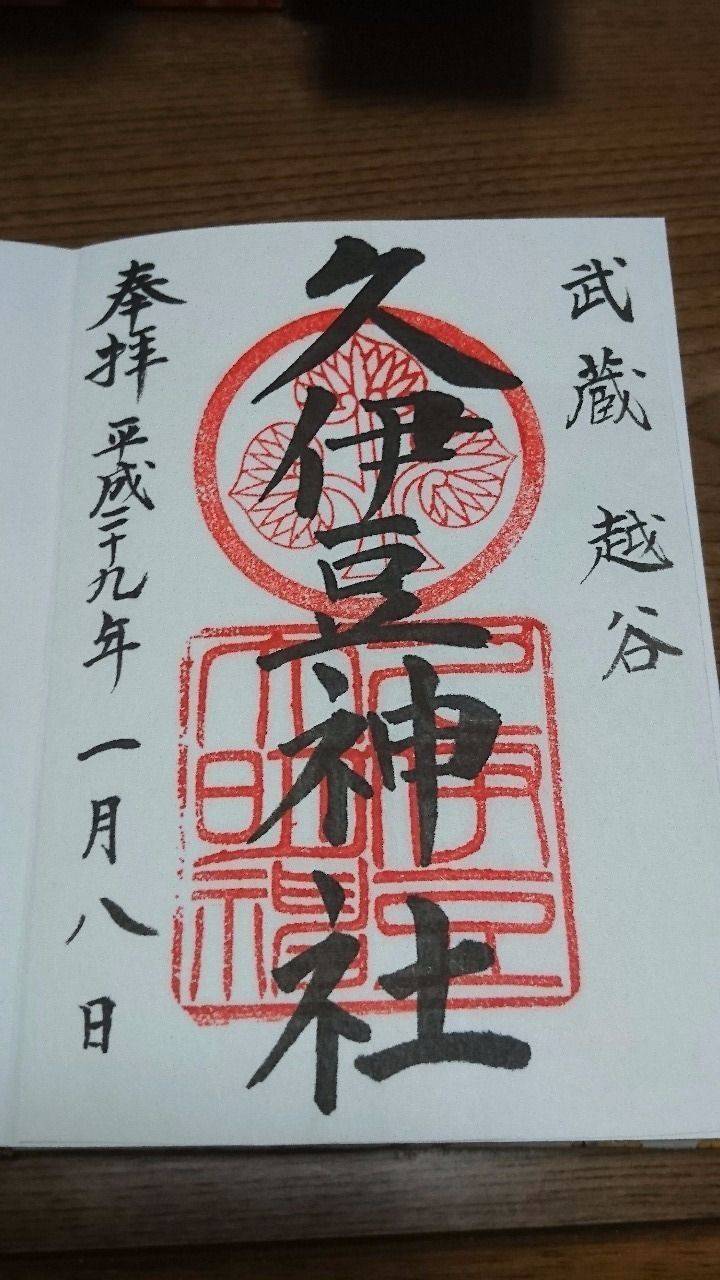 武蔵 越谷
久伊豆神社
奉拝 平成二十九年 一月八日